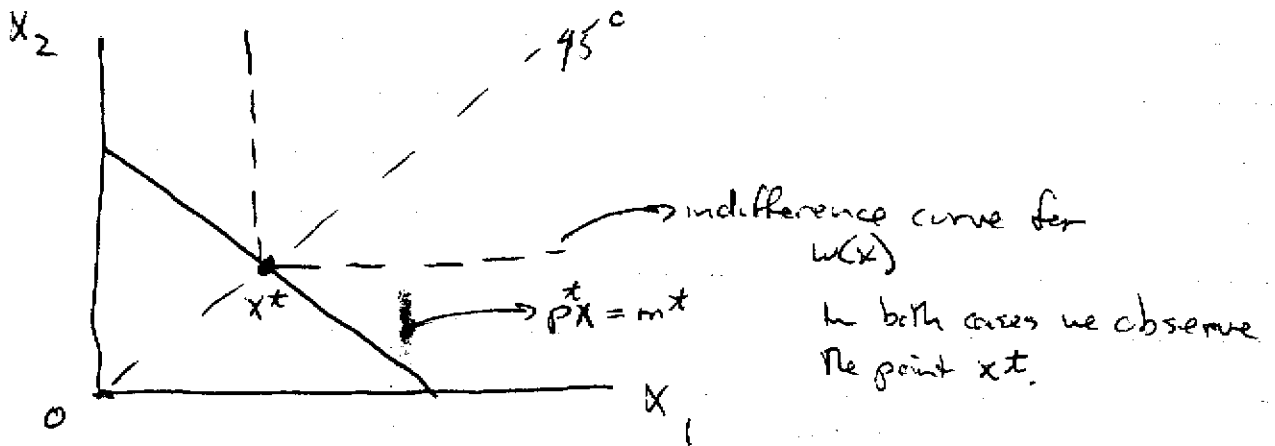 X₂
45°
indifference curve for
w(x)
xᵗ
pᵗx = mᵗ
In both cases we observe
the point xᵗ.
0
X₁